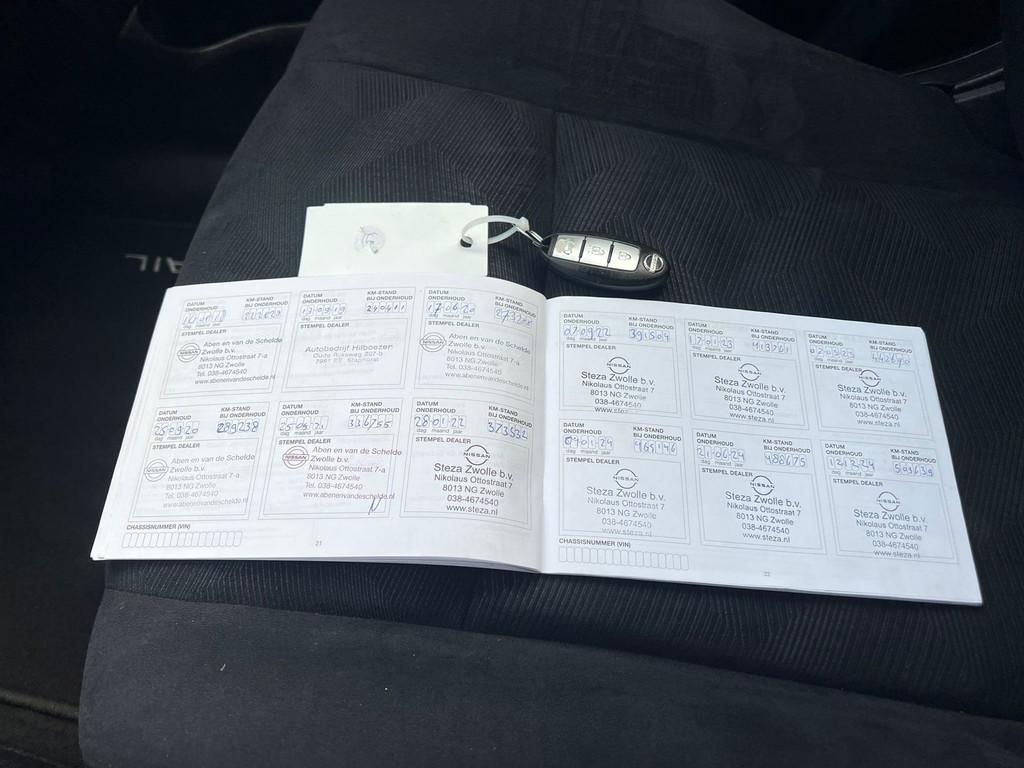 AIL
DATUM ONDERHOUD
KM-STAND BIJ ONDERHOUD
dag maand jaar
STEMPEL DEALER
NISSAN
Aben en van de Schelde
Zwolle b.v.
Nikolaus Ottostraat 7-a
8013 NG Zwolle
Tel. 038-4674540
www.abenenvandeschelde.nl
DATUM ONDERHOUD
13 09 19
dag maand jaar
KM-STAND BIJ ONDERHOUD
240411
STEMPEL DEALER
Autobedrijf Hilboezen
Oude Rijksweg
Staphorst
DATUM ONDERHOUD
17 06 20
dag maand jaar
KM-STAND BIJ ONDERHOUD
STEMPEL DEALER
NISSAN
Aben en van de Schelde
Zwolle b.v.
Nikolaus Ottostraat 7-a
8013 NG Zwolle
Tel. 038-4674540
www.abenenvandeschelde.nl
DATUM ONDERHOUD
25 09 20
dag maand jaar
KM-STAND BIJ ONDERHOUD
289238
STEMPEL DEALER
NISSAN
Aben en van de Schelde
Zwolle b.v.
Nikolaus Ottostraat 7-a
8013 NG Zwolle
Tel. 038-4674540
www.abenenvandeschelde.nl
DATUM ONDERHOUD
dag maand jaar
KM-STAND BIJ ONDERHOUD
336755
STEMPEL DEALER
NISSAN
Aben en van de Schelde
Zwolle b.v.
Nikolaus Ottostraat 7-a
8013 NG Zwolle
Tel. 038-4674540
www.abenenvandeschelde.nl
DATUM ONDERHOUD
28 01 22
dag maand jaar
KM-STAND BIJ ONDERHOUD
373532
STEMPEL DEALER
NISSAN
Steza Zwolle b.v.
Nikolaus Ottostraat 7
8013 NG Zwolle
038-4674540
www.steza.nl
CHASSISNUMMER (VIN)
21
DATUM ONDERHOUD
07 09 22
dag maand jaar
KM-STAND BIJ ONDERHOUD
391504
STEMPEL DEALER
NISSAN
Steza Zwolle b.v.
Nikolaus Ottostraat 7
8013 NG Zwolle
038-4674540
www.steza.nl
DATUM ONDERHOUD
17 01 23
dag maand jaar
KM-STAND BIJ ONDERHOUD
413261
STEMPEL DEALER
NISSAN
Steza Zwolle b.v.
Nikolaus Ottostraat 7
8013 NG Zwolle
038-4674540
www.steza.nl
DATUM ONDERHOUD
dag maand jaar
KM-STAND BIJ ONDERHOUD
STEMPEL DEALER
NISSAN
Steza Zwolle b.v.
Nikolaus Ottostraat 7
8013 NG Zwolle
038-4674540
www.steza.nl
DATUM ONDERHOUD
04 01 24
dag maand jaar
KM-STAND BIJ ONDERHOUD
465146
STEMPEL DEALER
NISSAN
Steza Zwolle b.v.
Nikolaus Ottostraat 7
8013 NG Zwolle
038-4674540
www.steza.nl
DATUM ONDERHOUD
21 06 24
dag maand jaar
KM-STAND BIJ ONDERHOUD
486675
STEMPEL DEALER
NISSAN
Steza Zwolle b.v.
Nikolaus Ottostraat 7
8013 NG Zwolle
038-4674540
www.steza.nl
DATUM ONDERHOUD
12 12 24
dag maand jaar
KM-STAND BIJ ONDERHOUD
503639
STEMPEL DEALER
NISSAN
Steza Zwolle b.v.
Nikolaus Ottostraat 7
8013 NG Zwolle
038-4674540
www.steza.nl
CHASSISNUMMER (VIN)
22